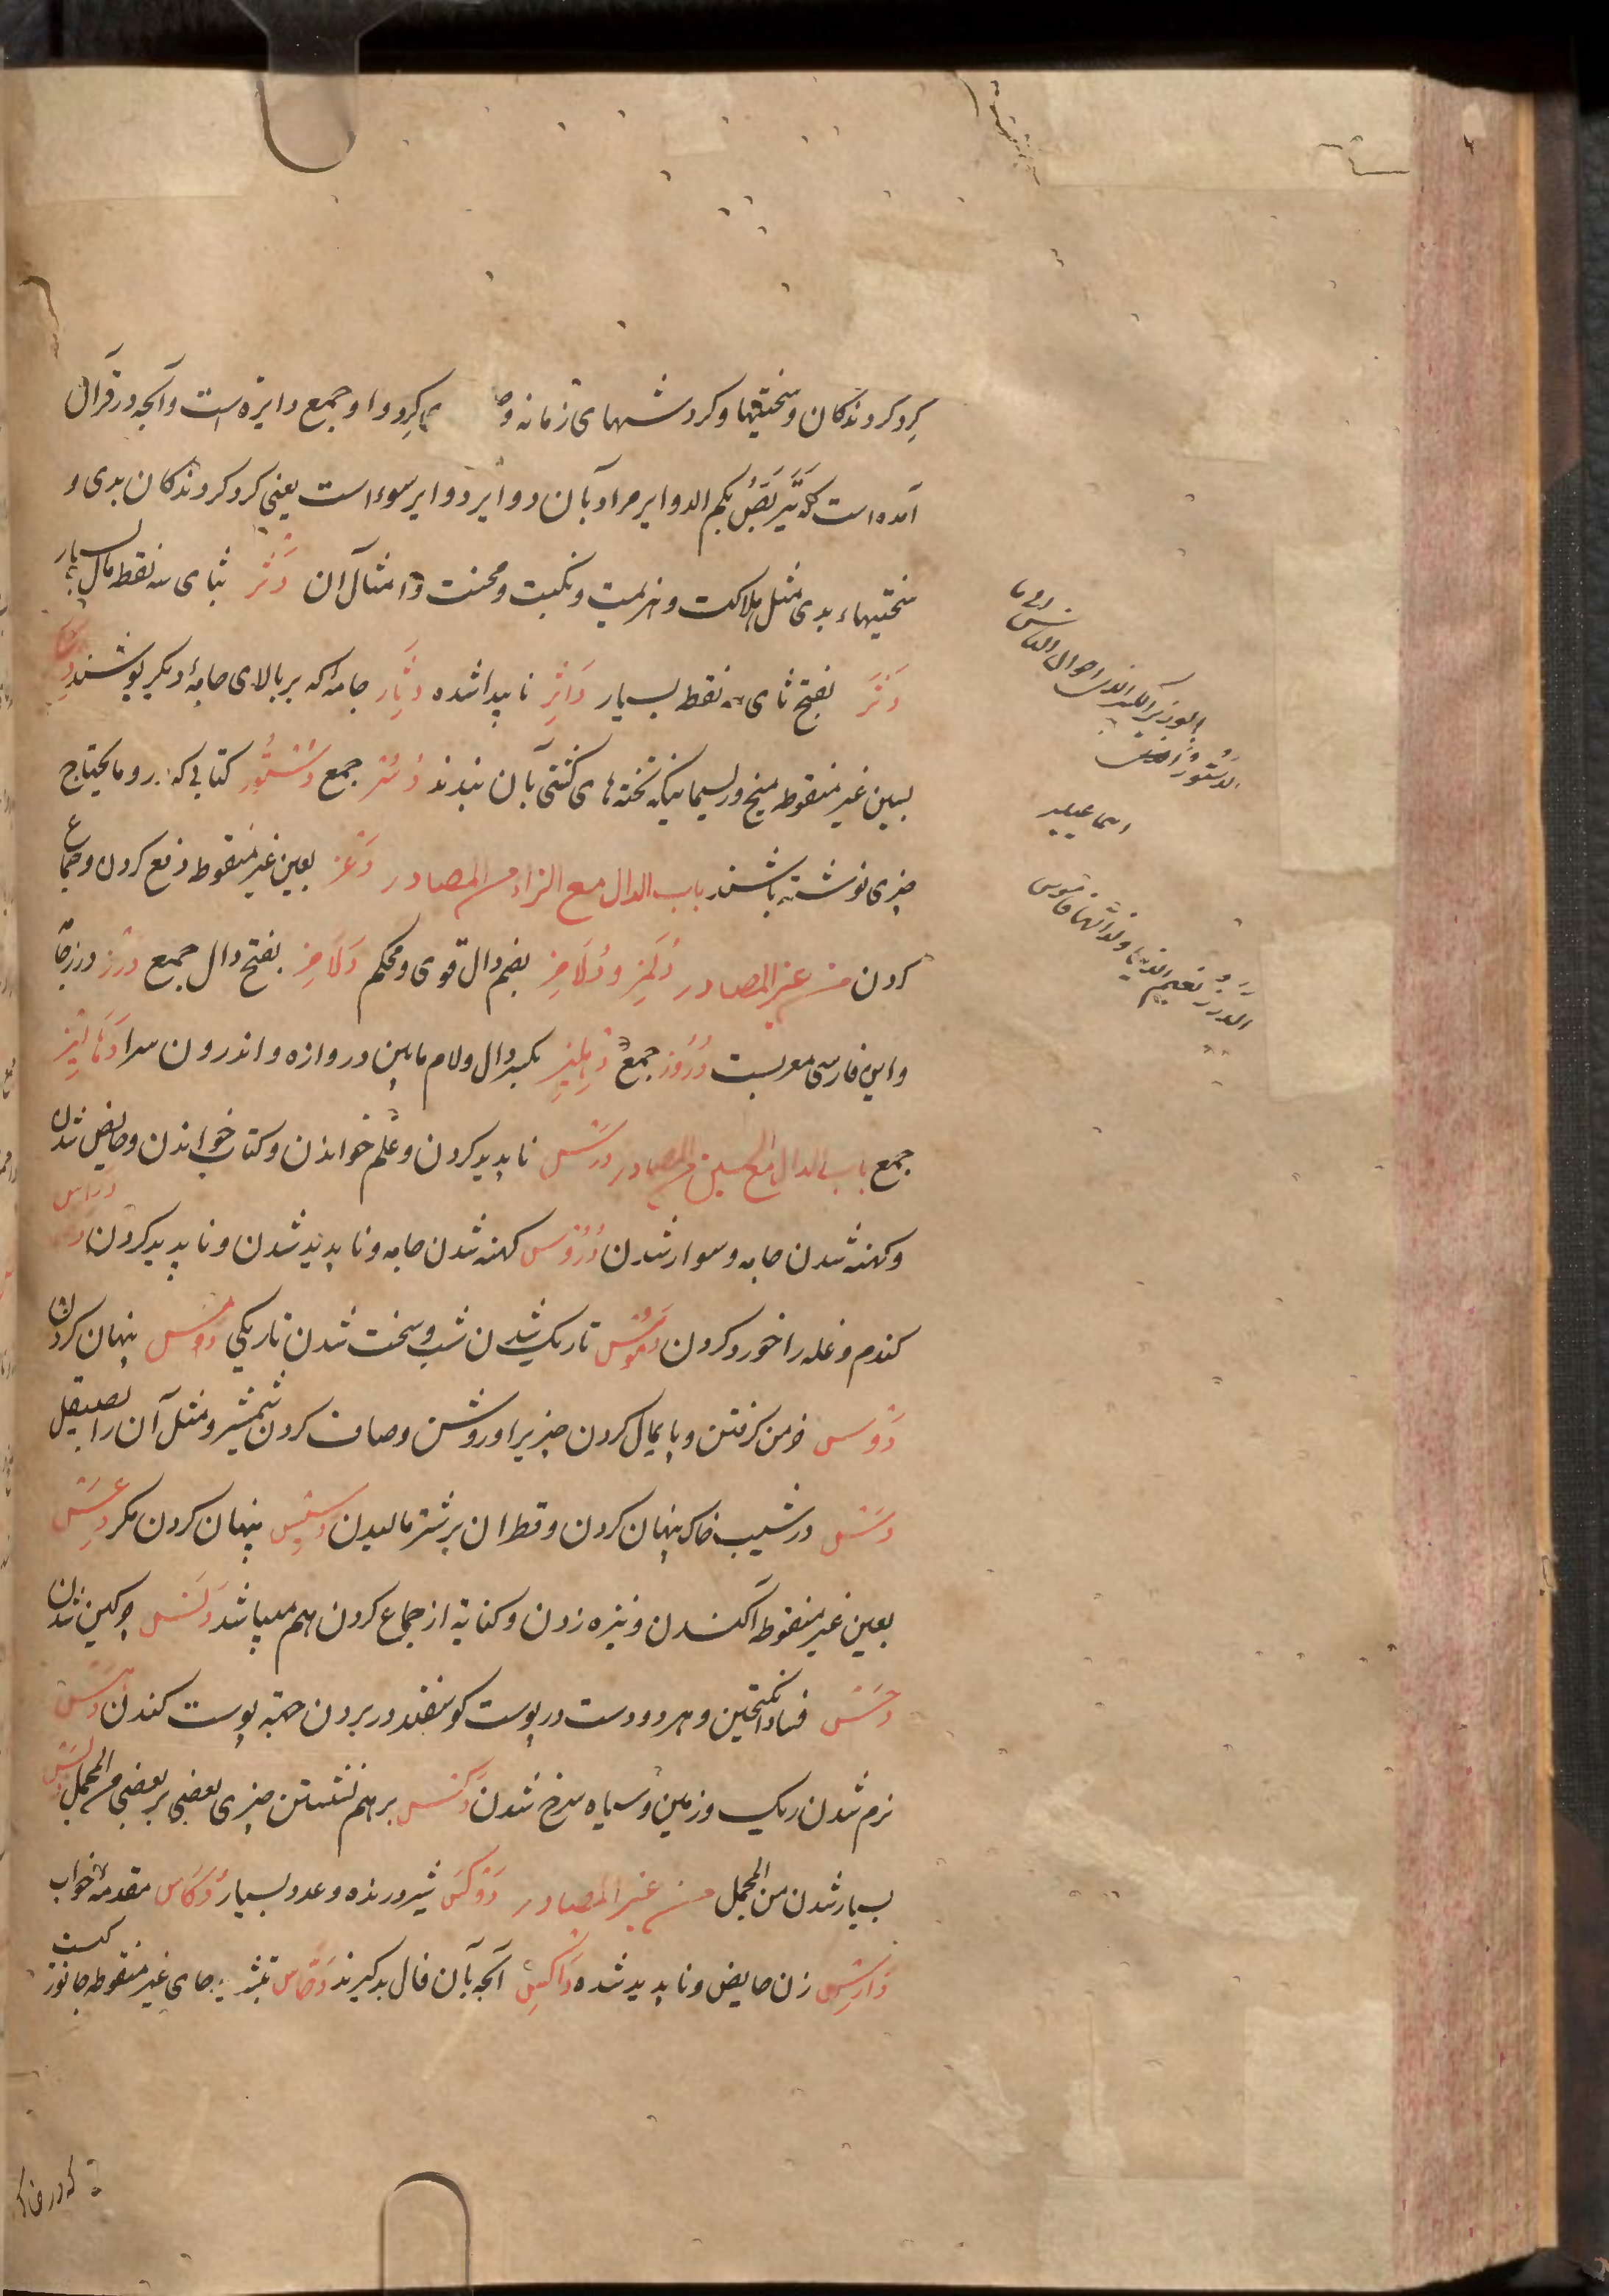 کرد کردندکان و سختیها و کردشهای زمانه و کرد و او جمع دایره است و آنچه در قرآن
آمده است که یتربص بکم الدوایر مراد بآن دوایر دوایر سوء است یعنی کرد کردندکان بدی و
سختیهاء بدی مثل هلاکت و هزیمت و نکبت و محنت و امثال آن دثر بثای سه نقط مال بسیار
دثر بفتح ثای سه نقط بسیار داثر ناپیدا شده دثار جامه که بر بالای جامهٔ دیکر پوشند
بسین غیر منقوطه میخ و ریسمانیکه تختهای کشتی بآن بندند دسر جمع دستور کتابی که درو مایحتاج
چیزی نوشته باشند باب الدال مع الزاء من المصادر دعز بعین غیر منقوط دفع کردن و جماع
کردن من غیر المصادر دلمز و دلامز بضم دال قوی و محکم دلامز بفتح دال جمع درز درز جامه
و این فارسی معربست دروز جمع دهلیز بکسر دال و لام مابین دروازه و اندرون سرا دهالیز
جمع باب الدال مع السین من المصادر درس ناپدید کردن و علم خواندن و کتاب خواندن و حایض شدن
و کهنه شدن جامه و سوار شدن دروس کهنه شدن جامه و ناپدید شدن و ناپدید کردن دراس
کندم و غله را خورد کردن دموس تاریک شدن شب و سخت شدن تاریکی دمس پنهان کردن
دوس خرمن کرفتن و پایمال کردن چیزیرا و روشن و صاف کردن شمشیر و مثل آن را بصیقل
دس در شیب خاک پنهان کردن و قطران بر شتر مالیدن دسیس پنهان کردن مکر دعس
بعین غیر منقوطه آکندن و نیزه زدن و کنایة از جماع کردن هم میباشد دنس چرکین شدن
دحس فساد انکیختن و هر دو دست در پوست کوسفند در بردن جهة پوست کندن دهس
نرم شدن ریک و زمین و سیاه سرخ شدن دکس بر هم نشستن چیزی بعضی بر بعضی من المجمل
بسیار شدن من المجمل من غیر المصادر دوکس شیر درنده و عدد بسیار دکاس مقدمهٔ خواب
دارس زن حایض و ناپدید شده داکس آنچه بآن فال بد کیرند دحاس بتشدید حای غیر منقوطه جانوریست
که در خاک
الوزیر الکبیر الذی احوال الناس
الدستور
اسماعیلیه
الدرز نعیم الدنیا و لذاتها قاموس